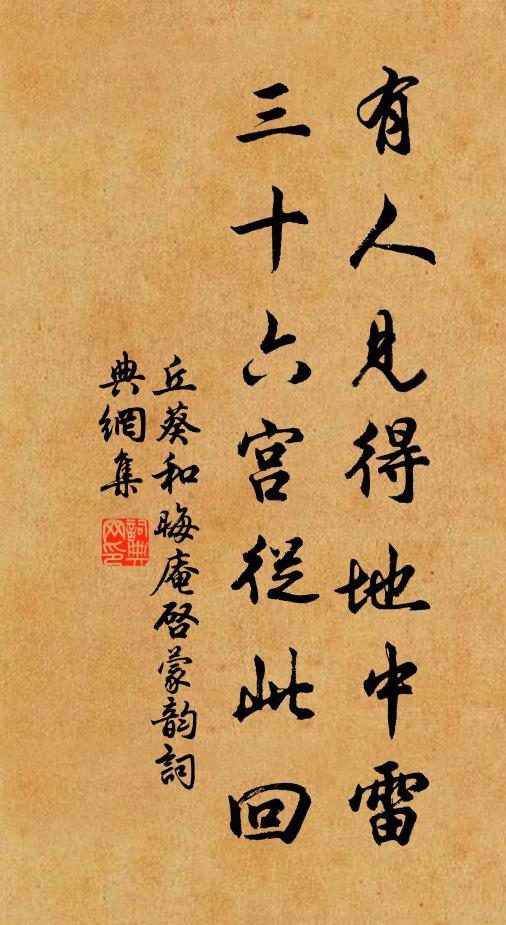 有人見得地中雷
三十六宮從此回
丘葵和晦庵啓蒙韵詞
典網集
詞典网印